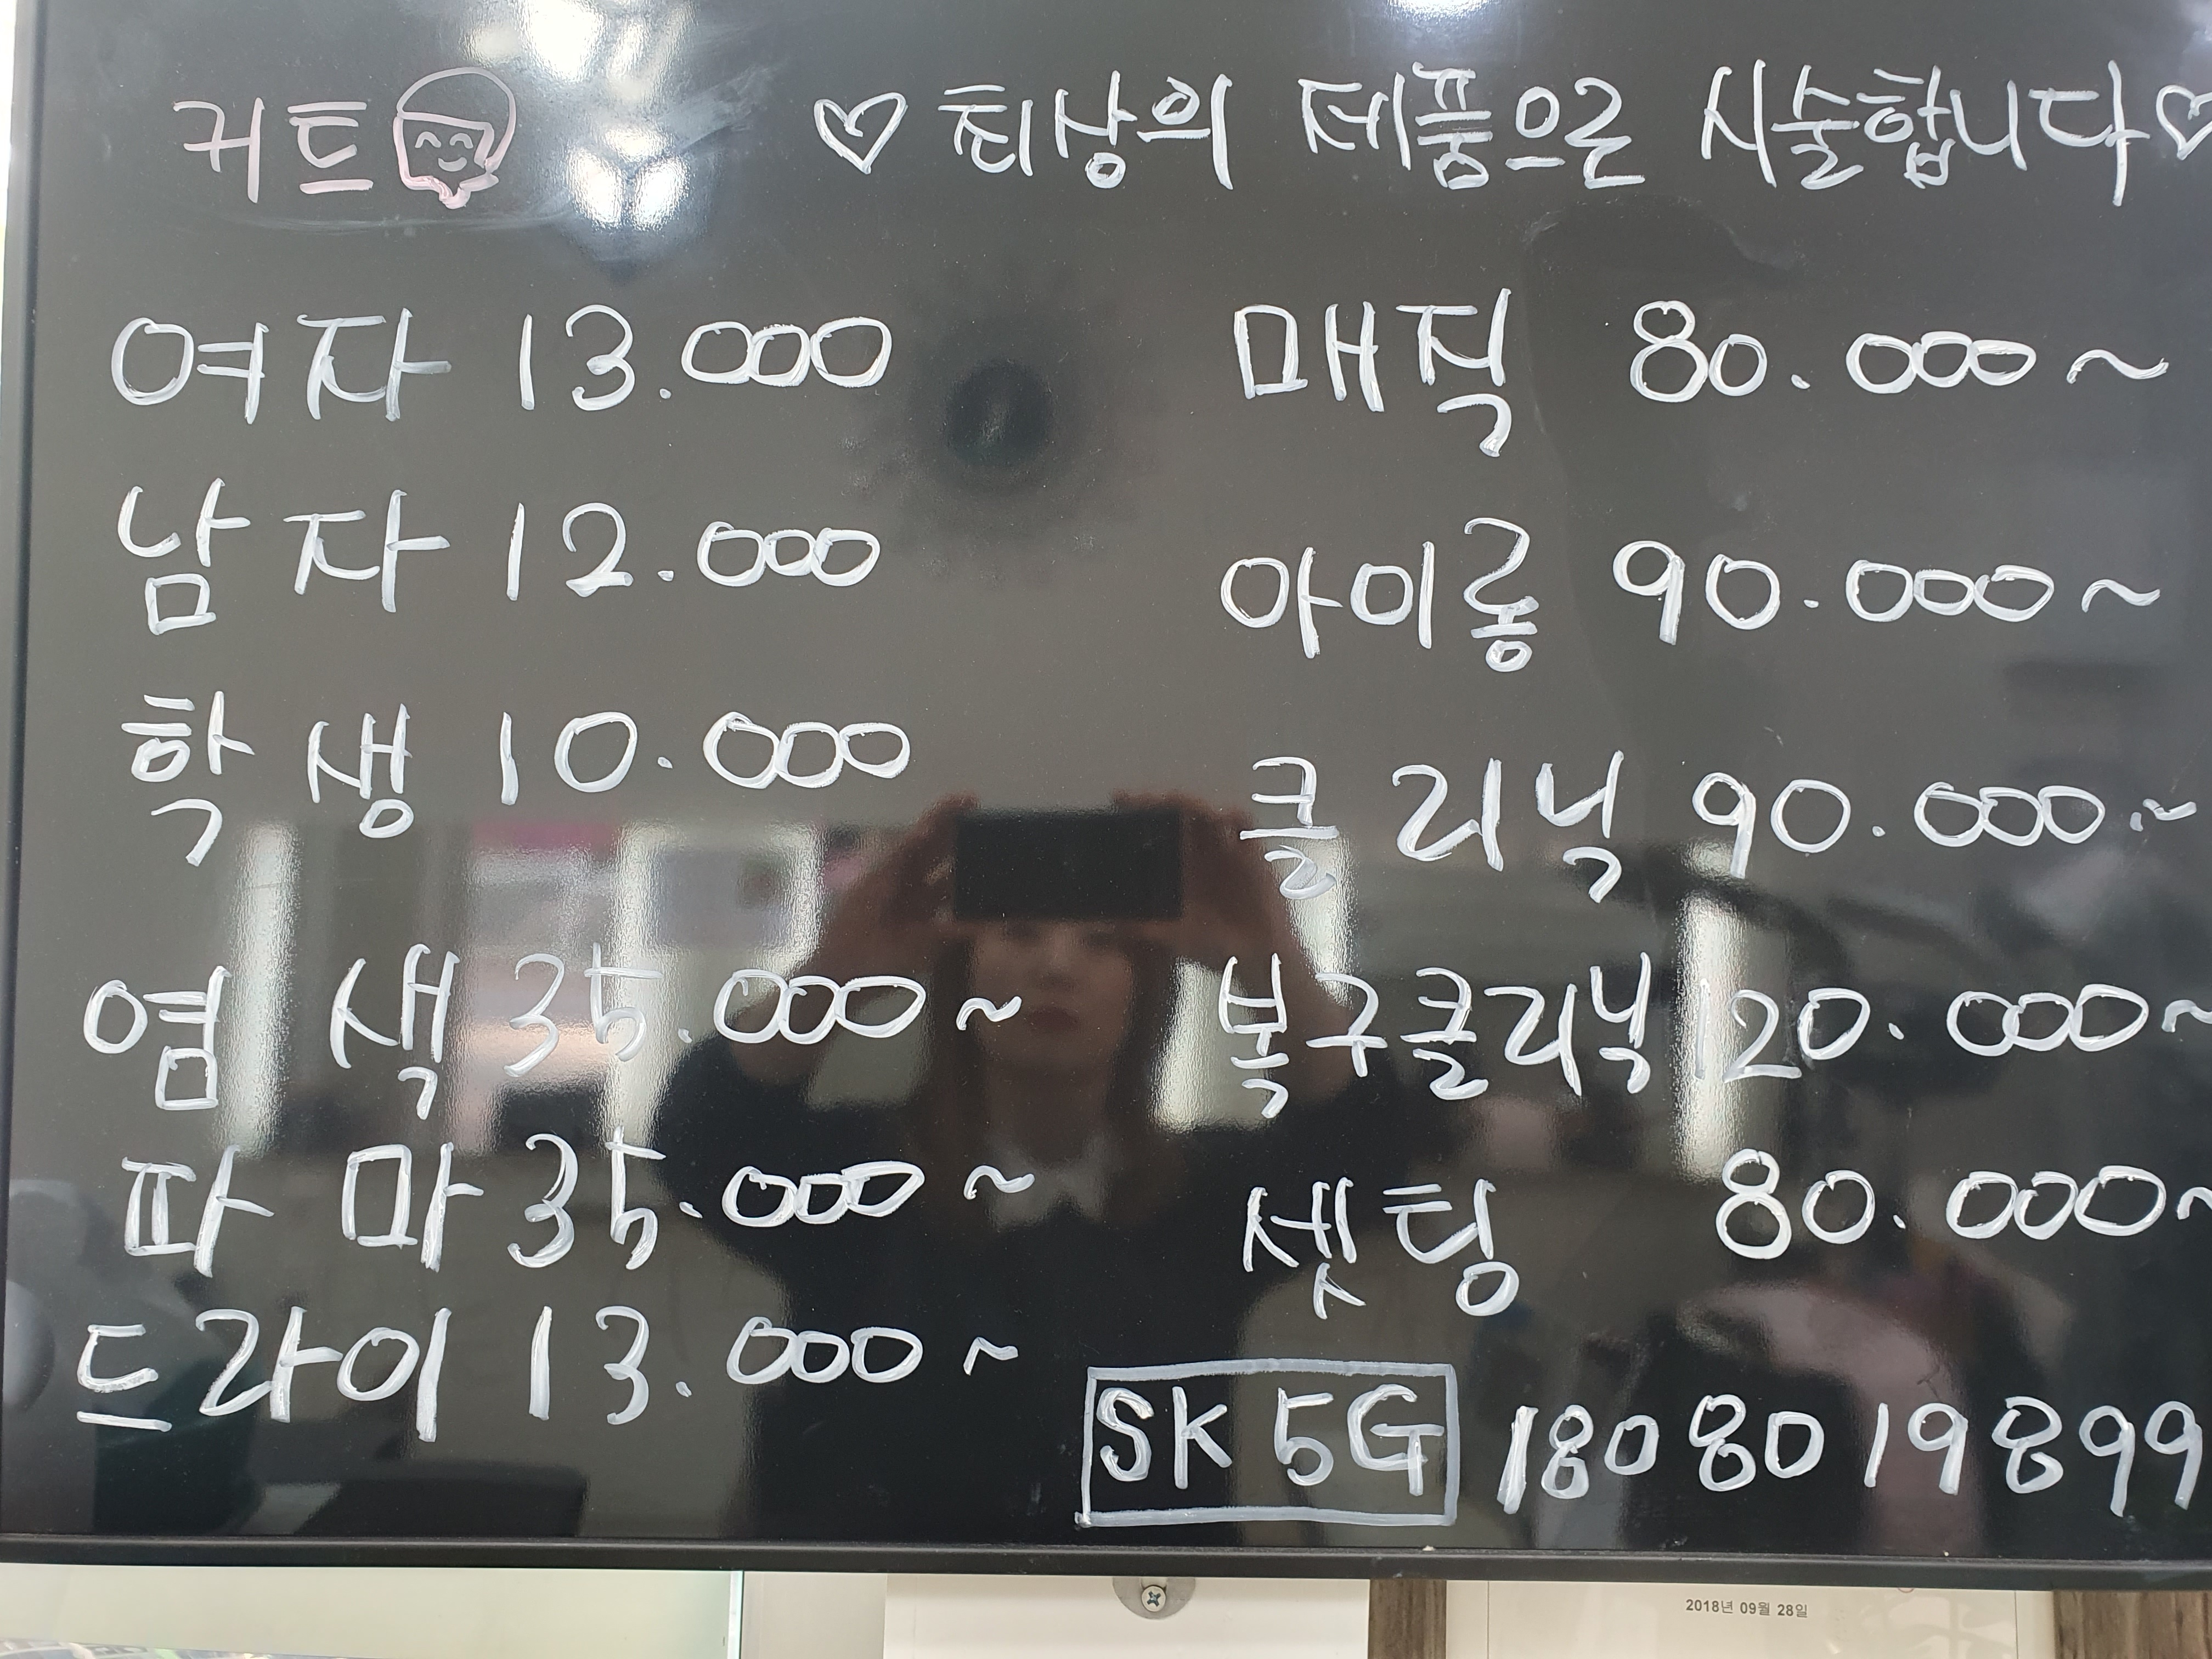 커트
♡ 최상의 제품으로 시술합니다 ♡
여자 13.000
남자 12.000
학생 10.000
염색 35.000~
파마 35.000~
드라이 13.000~
매직 80.000~
아이롱 90.000~
클리닉 90.000~
복구클리닉 120.000~
셋팅 80.000~
SK 5G 1808019899
2018년 09월 28일